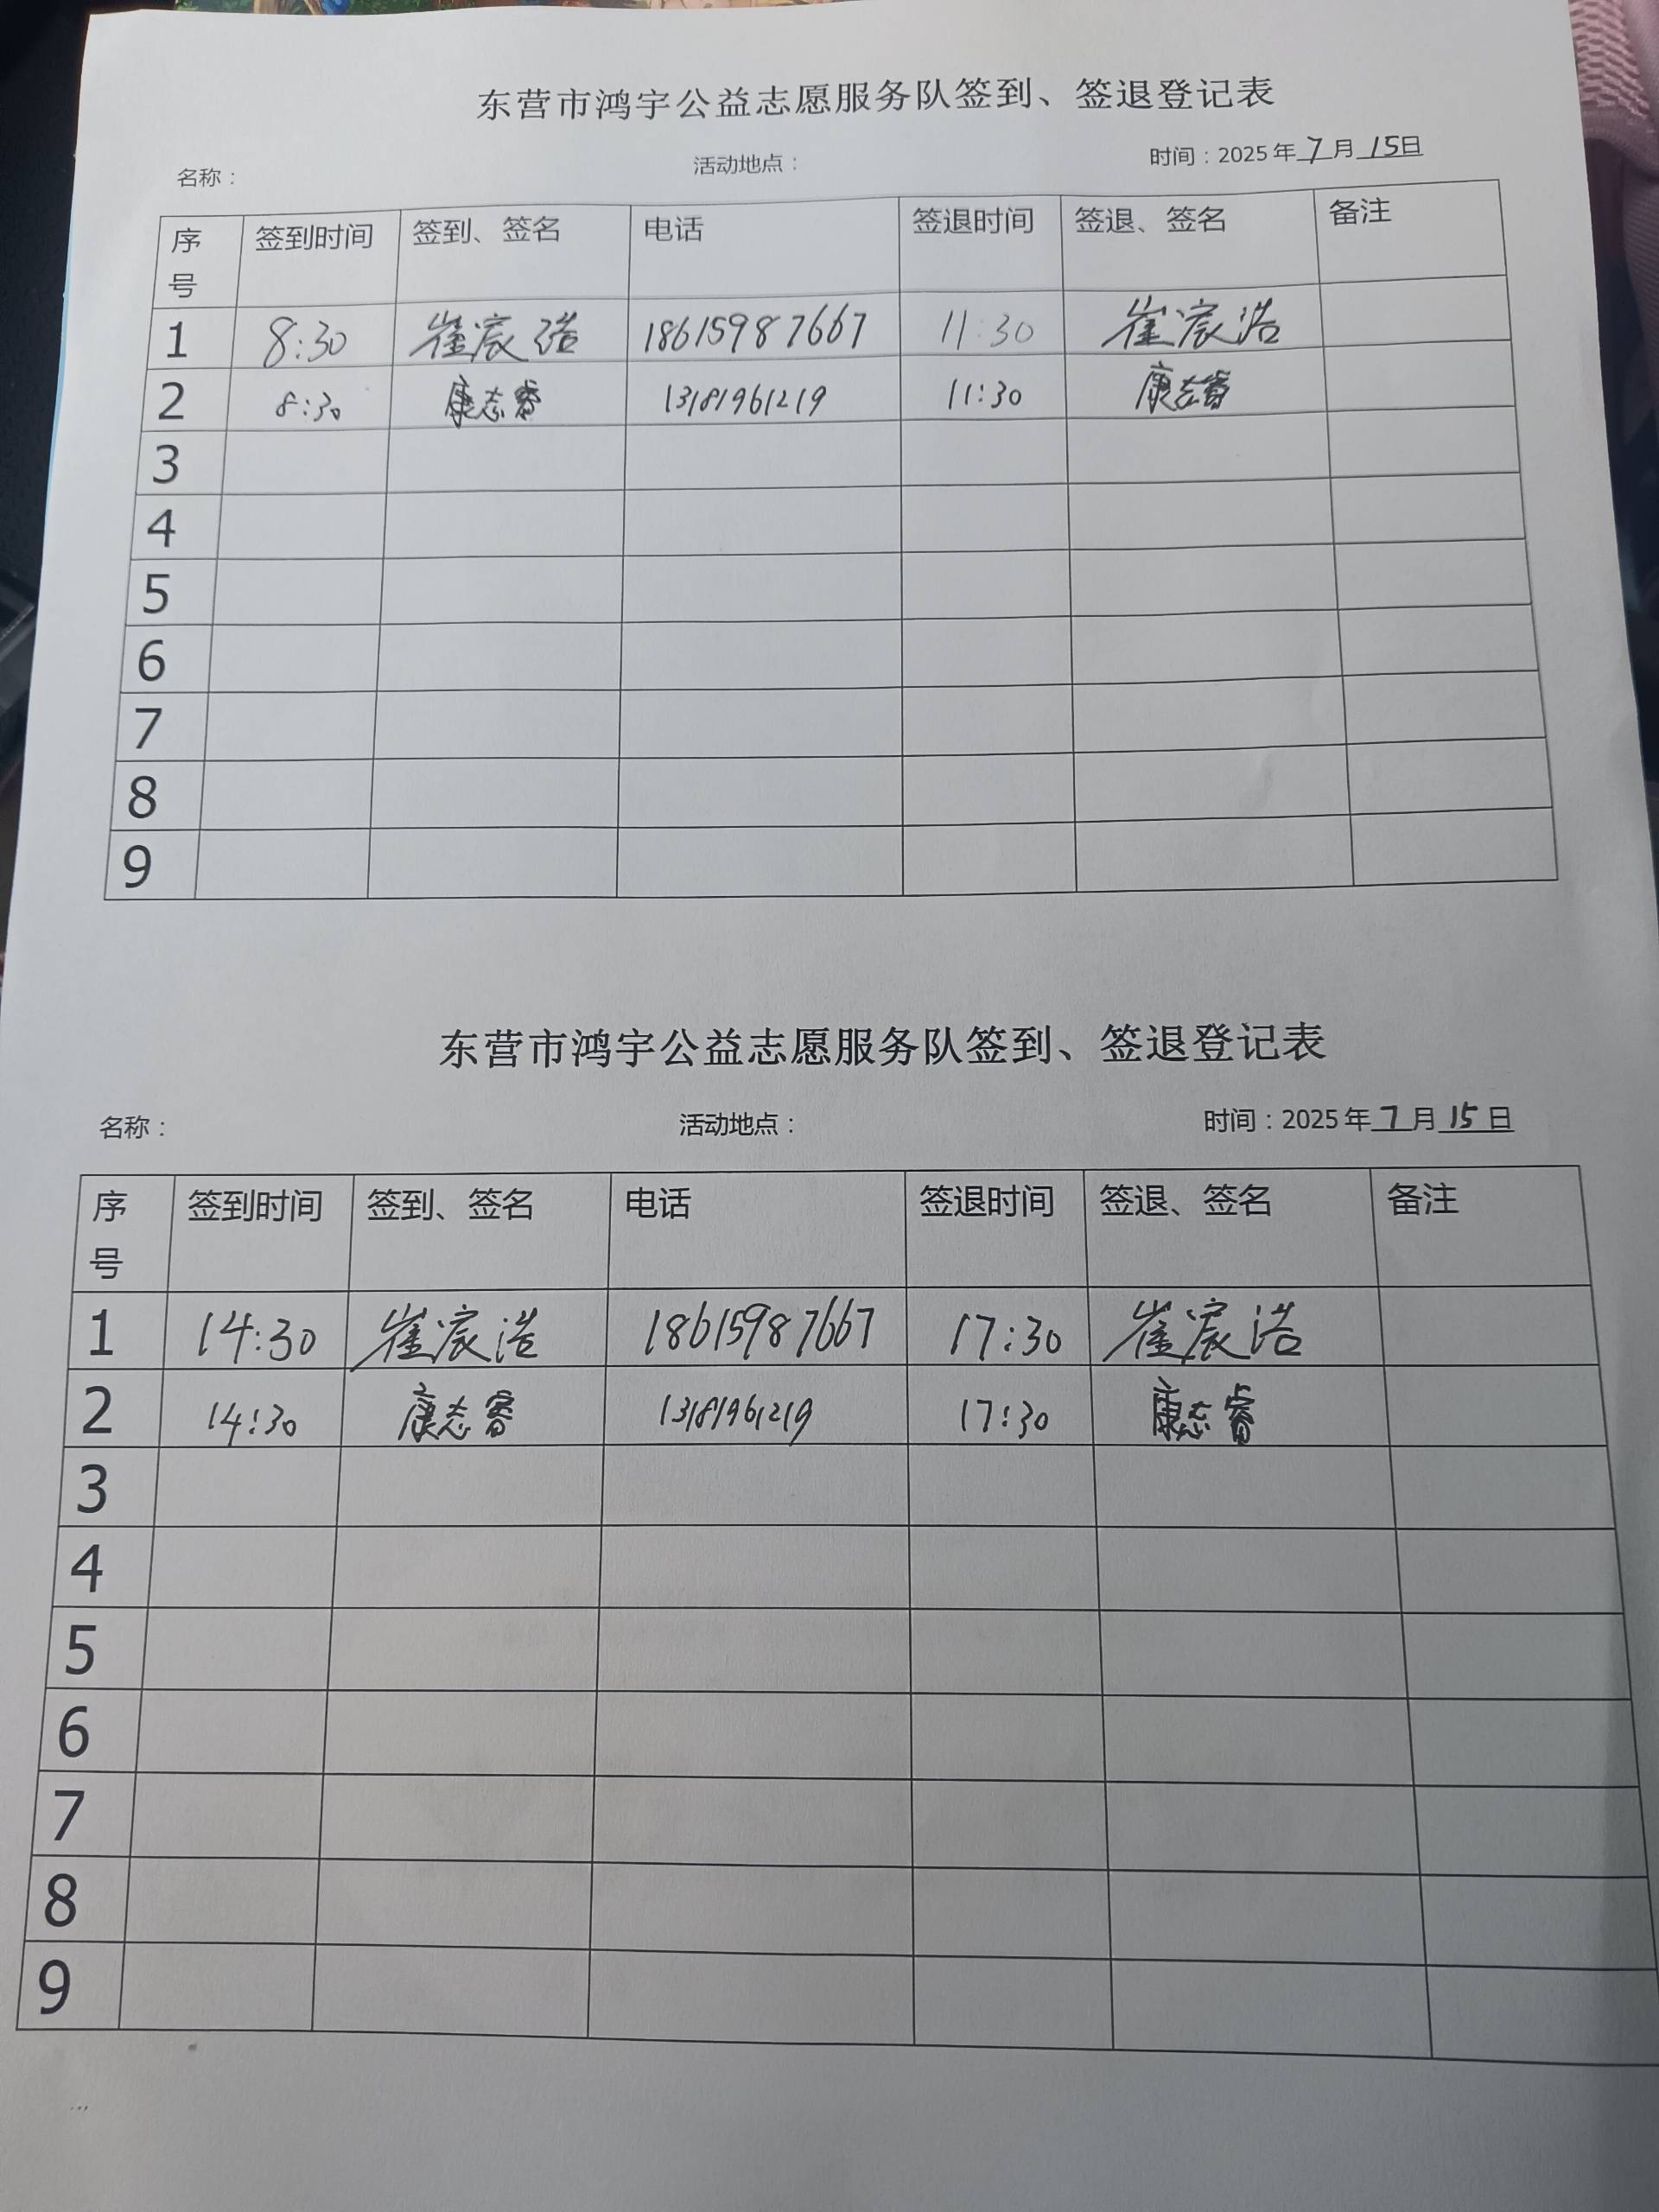 东营市鸿宇公益志愿服务队签到、签退登记表
名称： 活动地点： 时间：2025年7月15日
序号 签到时间 签到、签名 电话 签退时间 签退、签名 备注
1 8:30 崔宸浩 18615987667 11:30 崔宸浩
2 8:30 康志睿 13181961219 11:30 康志睿
3
4
5
6
7
8
9
东营市鸿宇公益志愿服务队签到、签退登记表
名称： 活动地点： 时间：2025年7月15日
序号 签到时间 签到、签名 电话 签退时间 签退、签名 备注
1 14:30 崔宸浩 18615987667 17:30 崔宸浩
2 14:30 康志睿 13181961219 17:30 康志睿
3
4
5
6
7
8
9